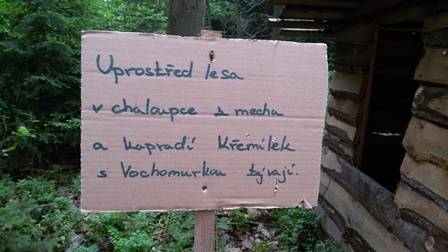 Uprostřed lesa
v chaloupce z mechu
a kapradí Křemílek
s Vochomurkou bývají.